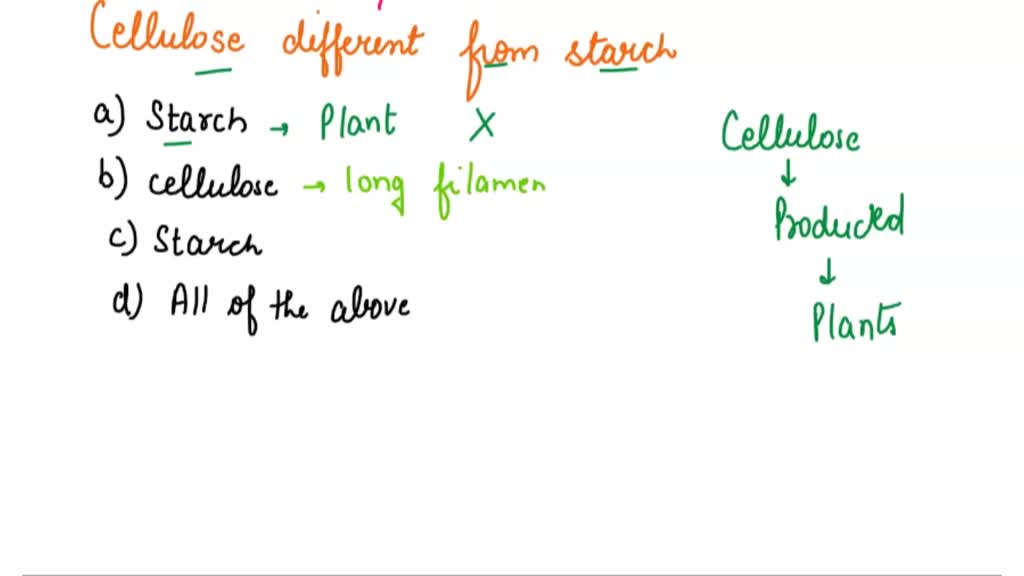 Cellulose different from starch
a) Starch → Plant X
b) cellulose → long filamen
c) Starch
d) All of the above
Cellulose
↓
Produced
↓
Plants